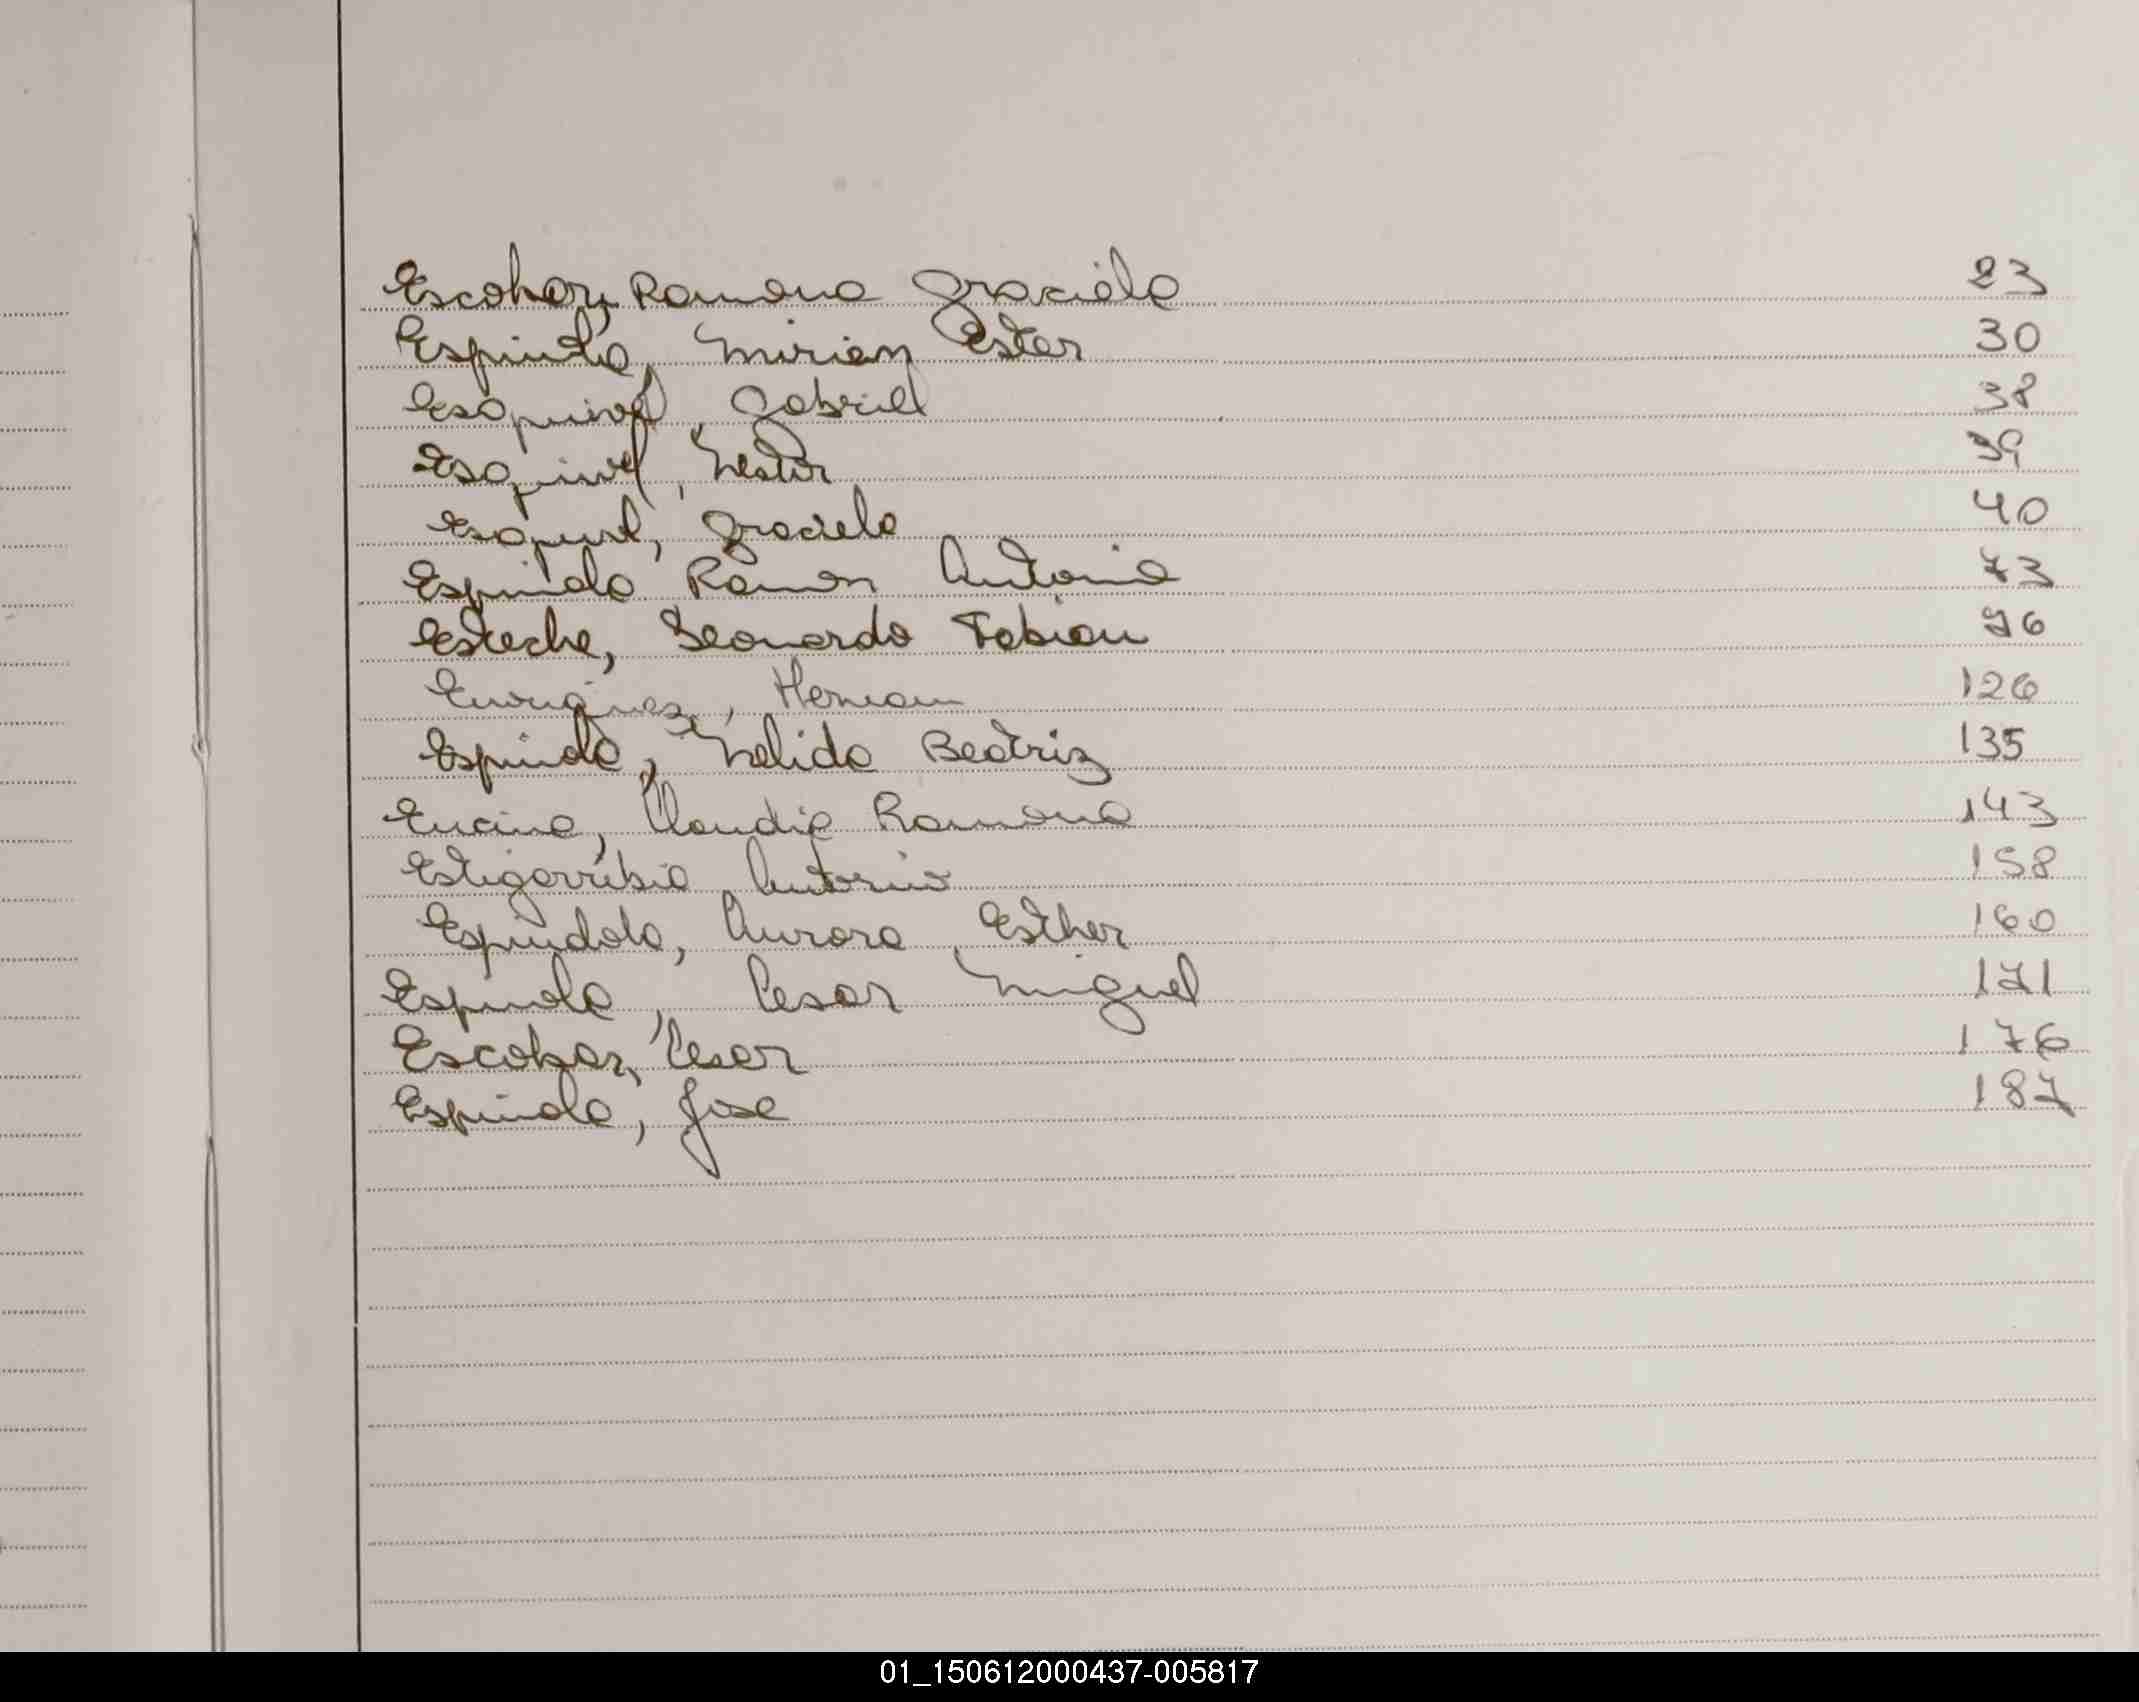 Escobar, Ramona Graciela 23
Espinola, Mirian Ester 30
Esquivel, Gabriel 38
Esquivel, Nestor 39
Esquivel, Graciela 40
Espinola Ramon Antonio 73
Esteche, Leonardo Fabian 76
Enriquez, Hernan 126
Espinola, Nelida Beatriz 135
Encina, Claudia Ramona 143
Estigarribia, Antonio 158
Espindola, Aurora Esther 160
Espinola, Cesar Miguel 171
Escobar, Cesar 176
Espinola, Jose 187
01_150612000437-005817